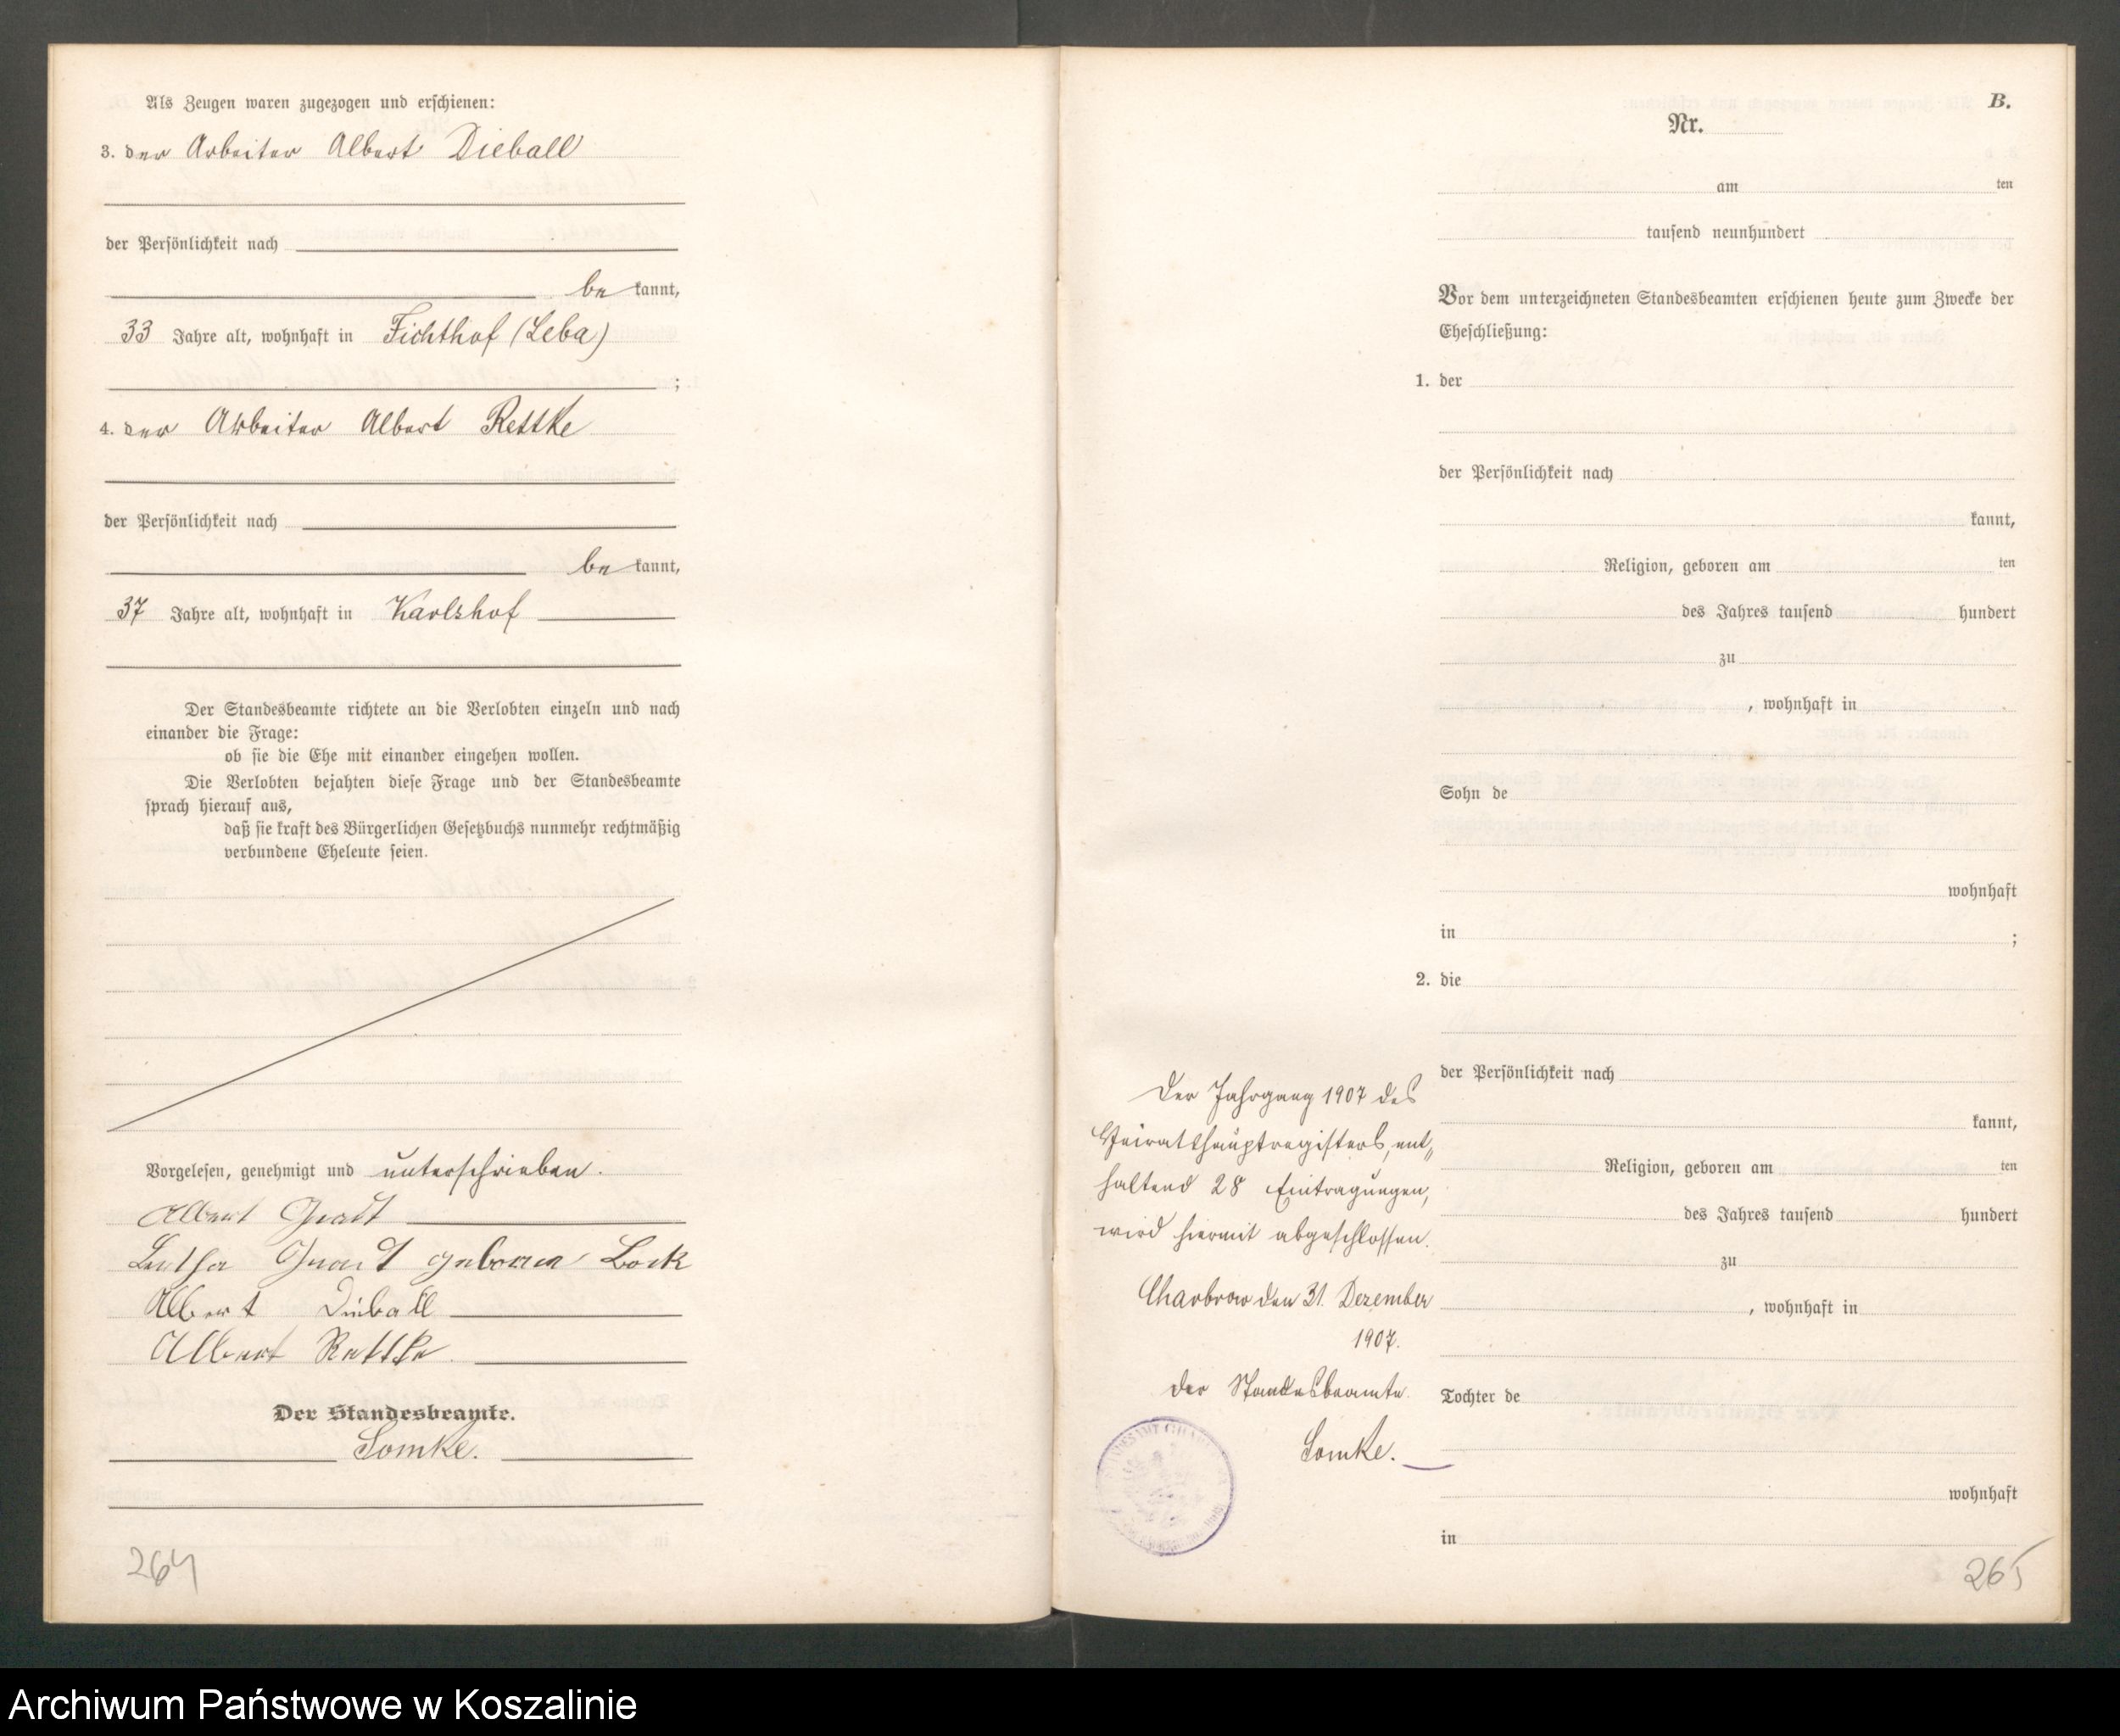 Als Zeugen waren zugezogen und erschienen:
3. der Arbeiter Albert Dieball
der Persönlichkeit nach
be kannt,
33 Jahre alt, wohnhaft in Fichthof (Leba)
;
4. der Arbeiter Albert Rettke
der Persönlichkeit nach
be kannt,
37 Jahre alt, wohnhaft in Karlshof
Der Standesbeamte richtete an die Verlobten einzeln und nach
einander die Frage:
ob sie die Ehe mit einander eingehen wollen.
Die Verlobten bejahten diese Frage und der Standesbeamte
sprach hierauf aus,
daß sie kraft des Bürgerlichen Gesetzbuchs nunmehr rechtmäßig
verbundene Eheleute seien.
Vorgelesen, genehmigt und unterschrieben.
Albert
geborene Bock
Albert Dieball
Albert Rettke
Der Standesbeamte.
Lomke.
264
B.
Nr.
am ten
tausend neunhundert
Vor dem unterzeichneten Standesbeamten erschienen heute zum Zwecke der
Eheschließung:
1. der
der Persönlichkeit nach
kannt,
Religion, geboren am ten
des Jahres tausend hundert
zu
, wohnhaft in
Sohn de
wohnhaft
in ;
2. die
der Persönlichkeit nach
kannt,
Religion, geboren am ten
des Jahres tausend hundert
zu
, wohnhaft in
Tochter de
wohnhaft
in
Der Jahrgang 1907 des
Heirathshauptregisters, ent„
haltend 28 Eintragungen,
wird hiermit abgeschlossen.
Charbrow den 31. Dezember
1907.
Der Standesbeamte.
Lomke.
265
Archiwum Państwowe w Koszalinie